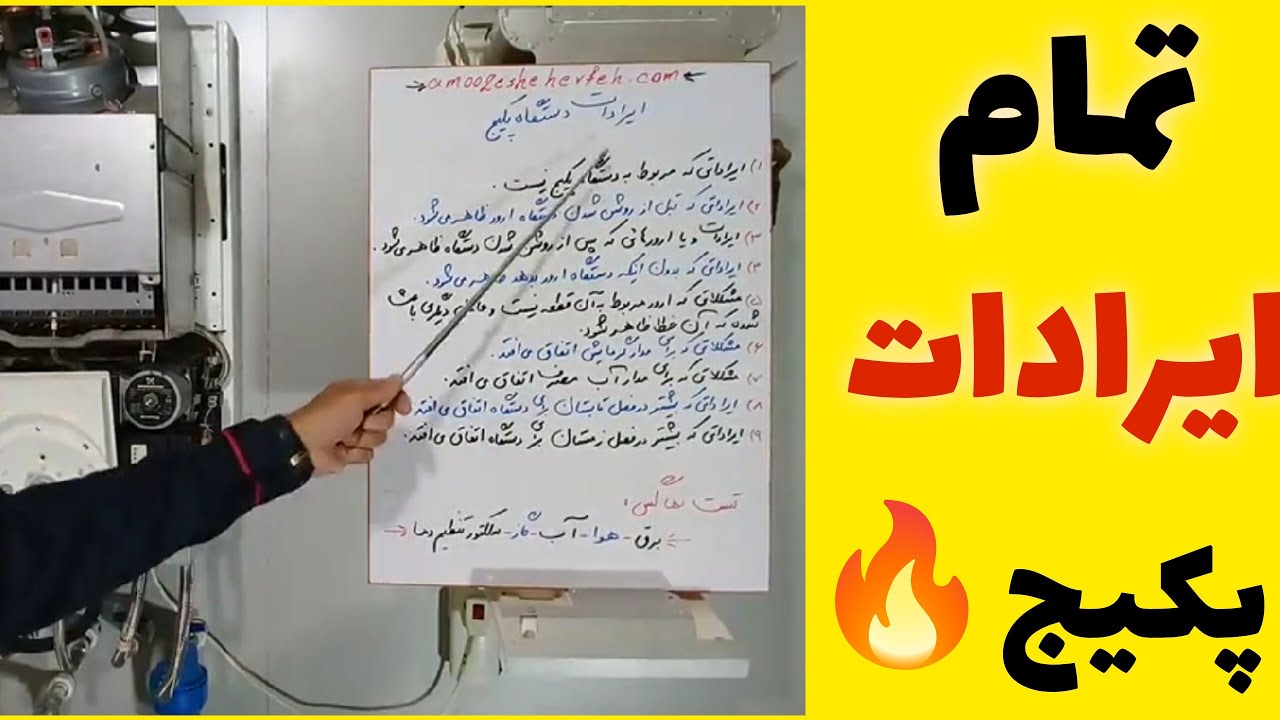 →amoozesheherfeh.com←
ایرادات دستگاه پکیج
۱) ایراداتی که مربوط به دستگاه پکیج نیست.
۲) ایراداتی که قبل از روشن شدن دستگاه ارور ظاهر می‌شود.
۳) ایرادات و یا ارورهائی که پس از روشن شدن دستگاه ظاهر می‌شود.
۴) ایراداتی که بدون اینکه دستگاه ارور بدهد ظاهر می‌شود.
۵) مشکلاتی که ارور مربوط به آن قطعه نیست و عامل دیگری باعث
شده که آن خطا ظاهر شود.
۶) مشکلاتی که برای مدار گرمایش اتفاق می‌افتد.
۷) مشکلاتی که برای مدار آب مصرفی اتفاق می‌افتد.
۸) ایراداتی که بیشتر در فصل تابستان برای دستگاه اتفاق می‌افتد
۹) ایراداتی که بیشتر در فصل زمستان برای دستگاه اتفاق می‌افتد.
تست :
برق - هوا - آب - گاز - تنظیم دما
تمام
ایرادات
پکیج